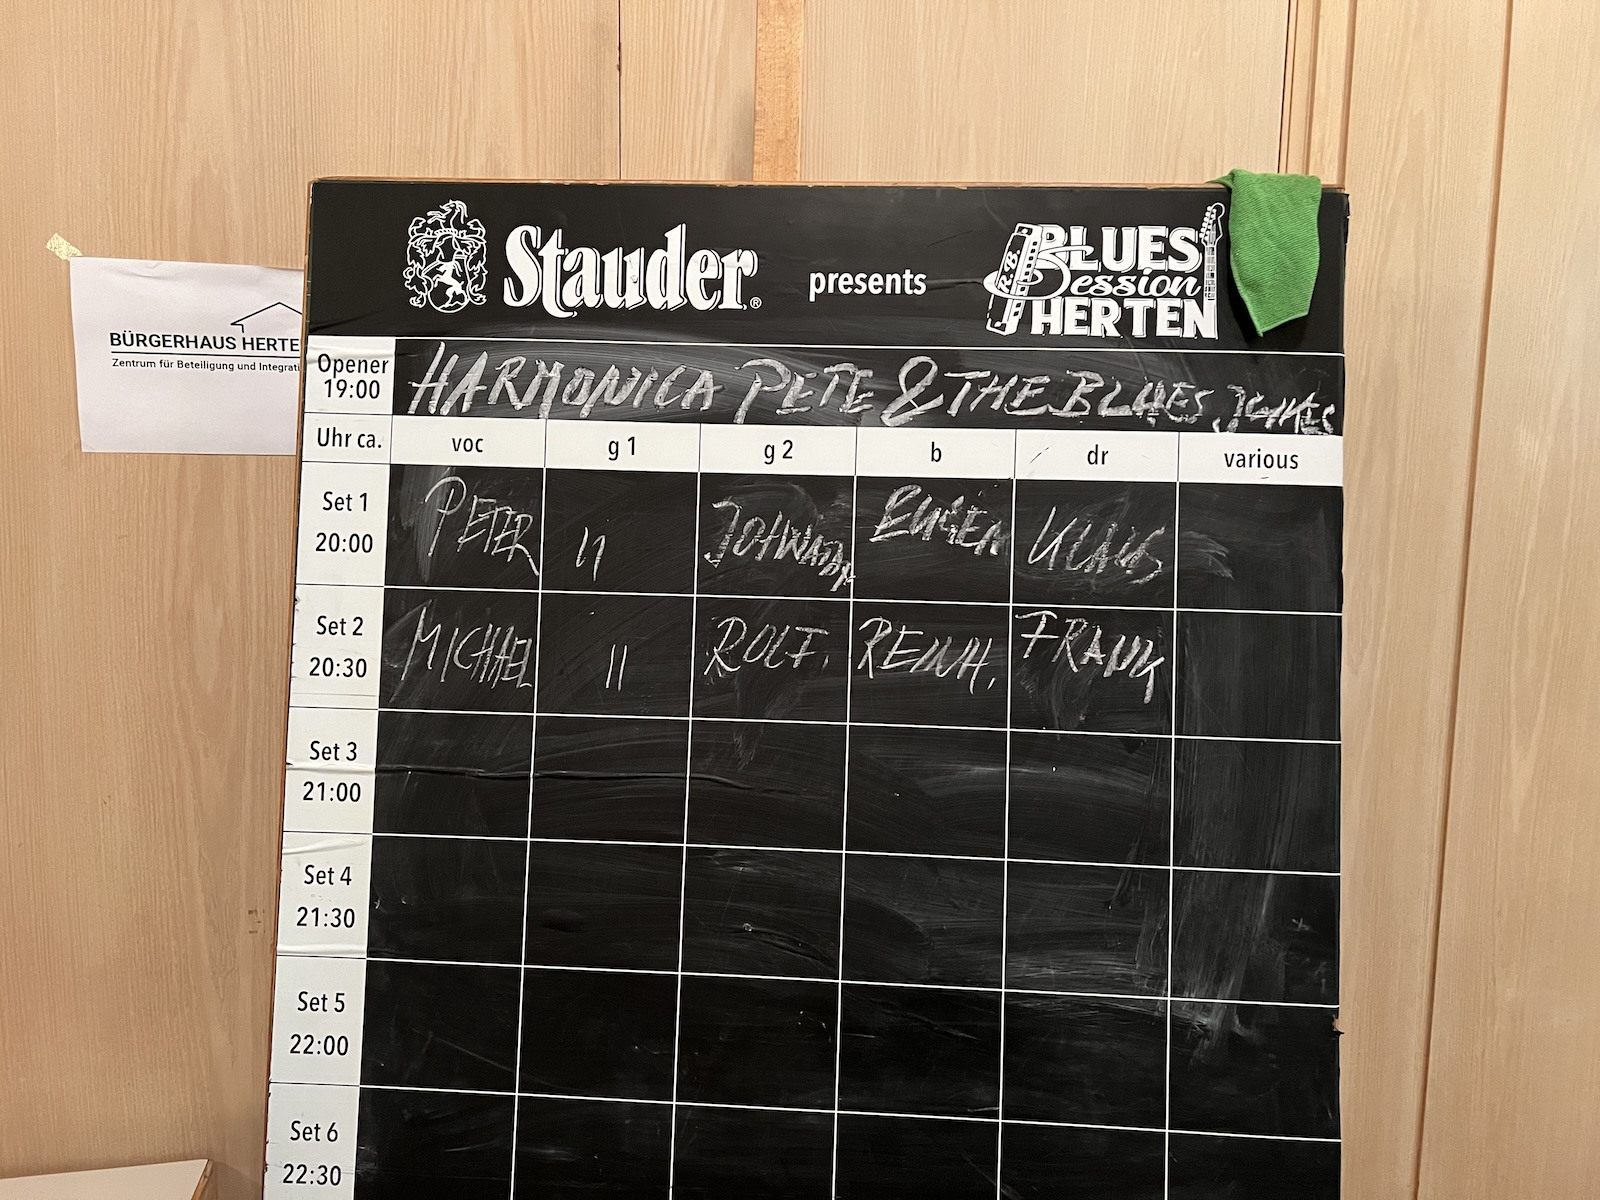 BÜRGERHAUS HERTE
Zentrum für Beteiligung und Integrati
Stauder®
presents
R.B.
BLUES
Session
HERTEN
Opener
19:00
HARMONICA PETE & THE BLUES
Uhr ca.
voc
g 1
g 2
b
dr
various
Set 1
20:00
PETER
II
EUGEN
KLAUS
Set 2
20:30
MICHAEL
II
ROLF.
REINH.
FRANK
Set 3
21:00
Set 4
21:30
Set 5
22:00
Set 6
22:30